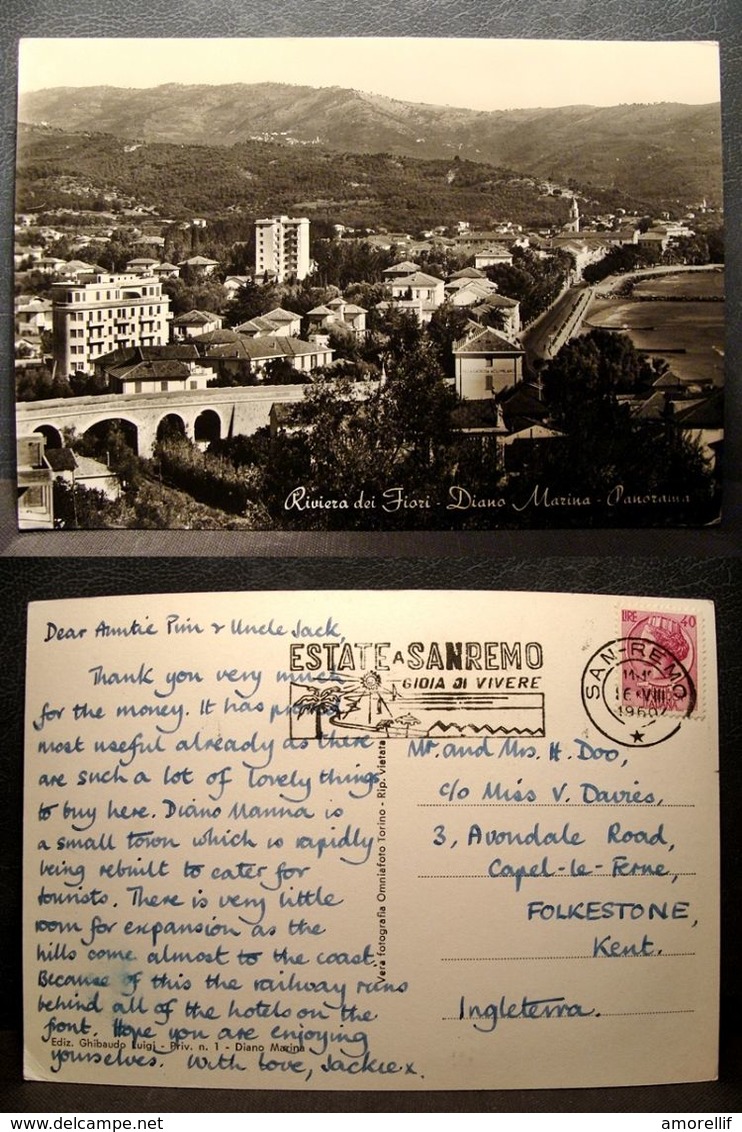 Riviera dei Fiori - Diano Marina - Panorama
Dear Auntie Pim & Uncle Jack,
Thank you very much
for the money. It has proved
most useful already as there
are such a lot of lovely things
to buy here. Diano Marina is
a small town which is rapidly
being rebuilt to cater for
tourists. There is very little
room for expansion as the
hills come almost to the coast.
Because of this the railway runs
behind all of the hotels on the
front. Hope you are enjoying
yourselves. With love, Jackie x.
Ediz. Ghibaudo Luigi - Priv. n. 1 - Diano Marina
Vera fotografia Omniafoto Torino - Rip. Vietata
ESTATE A SANREMO
GIOIA DI VIVERE
LIRE 40
ITALIA
SAN-REMO
16 VIII
1960
Mr. and Mrs. H. Doo,
c/o Miss V. Davies,
3, Avondale Road,
Capel-le-Ferne,
FOLKESTONE,
Kent.
Ingleterra.
amorellif